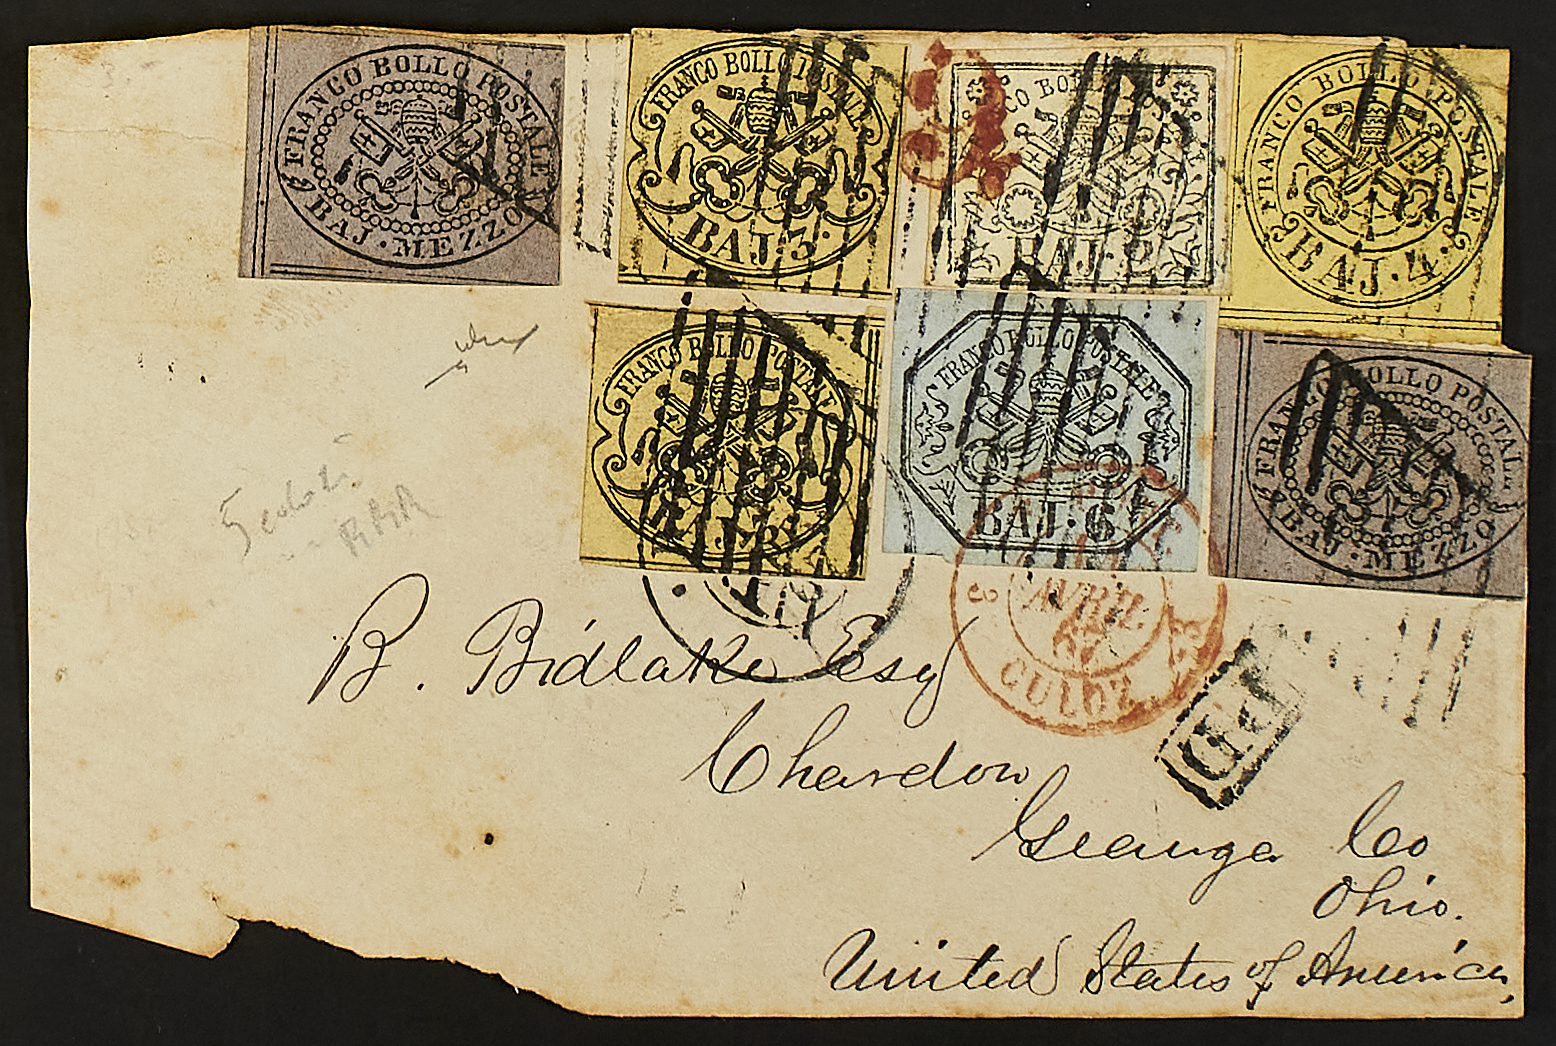 FRANCO BOLLO POSTALE
BAJ · MEZZO
FRANCO BOLLO POSTALE
BAJ · 3 ·
CO BO
BAJ · 8
FRANCO BOLLO POSTALE
BAJ · 4 ·
FRANCO BOLLO POSTALE
BAJ · 3 ·
FRANCO BOLLO POSTALE
BAJ · 6 ·
FRANCO BOLLO POSTALE
BAJ · MEZZO
5 colori
RRR
3
AVRIL
67
CULOZ
PD
B. Bidlake Esq
Chardon
Geauga Co
Ohio.
United States of America,